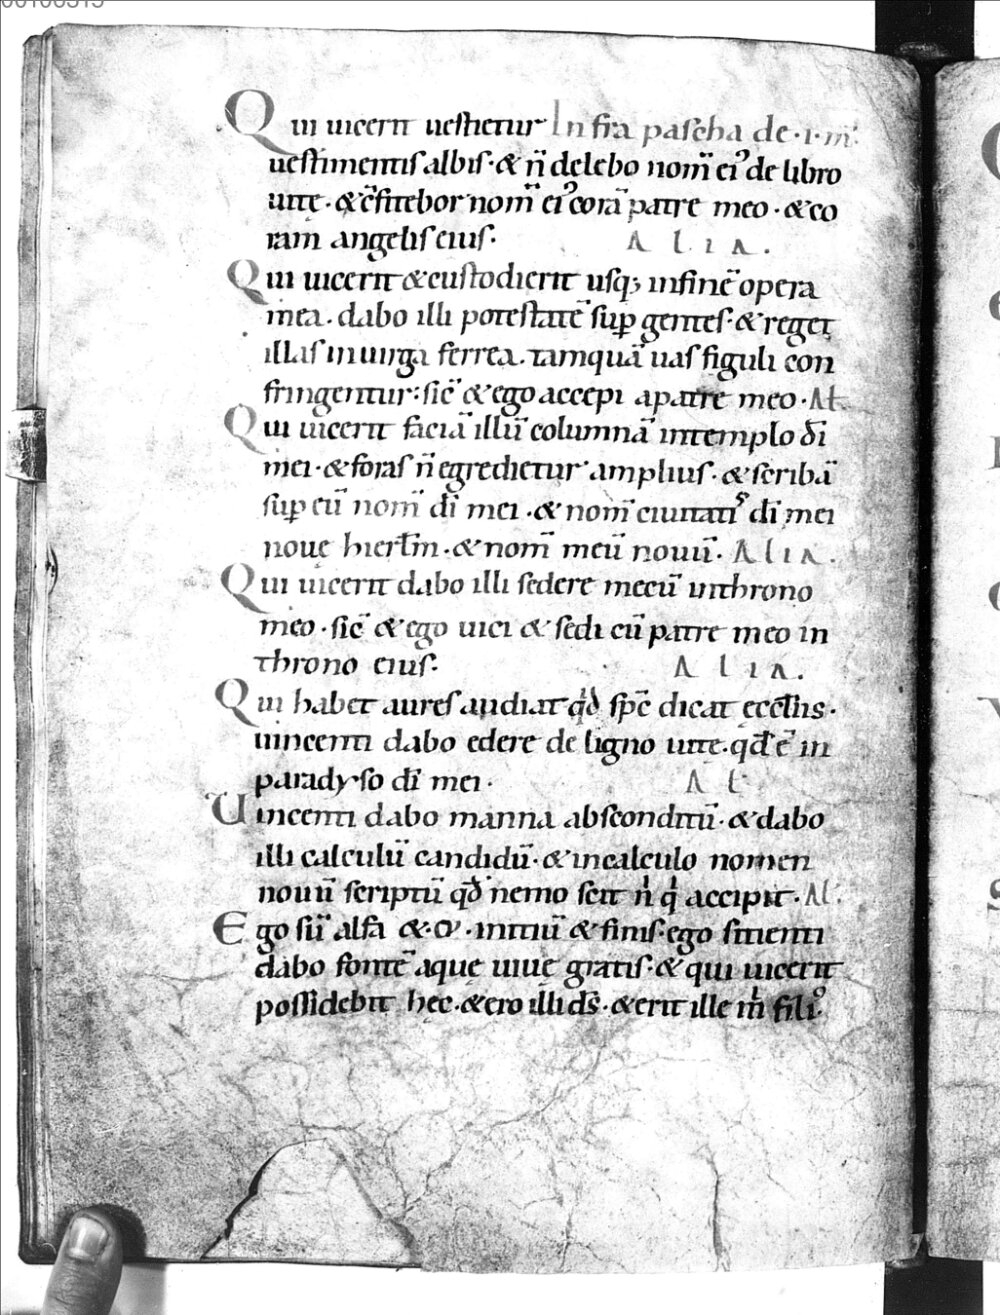 Qui uicerit uestietur In fra pascha de .i. m̄.
uestimentis albis· & n̄ delebo nom̄ ei᾿ de libro
uitę· & c̄fitebor nom̄ ei᾿ corā patre meo· & co
ram angelis eius· Alia.
Qui uicerit & custodierit usq; in finē opera
mea· dabo illi potestatē sup̲ gentes· & reget
illas in uirga ferrea· tamquā uas figuli con
fringentur: sic̄ & ego accepi a patre meo· Al̄
Qui uicerit faciā illū columnā in templo dī
mei· & foras n̄ egredietur amplius· & scribā
sup̲ eū nom̄ dī mei· & nom̄ ciuitatis dī mei
nouę hierl̄m· & nom̄ meū nouū· Alia.
Qui uicerit dabo illi sedere mecū in throno
meo· sic̄ & ego uici & sedi cū patre meo in
throno eius· Alia.
Qui habet aures audiat qd̄ sp̄c dicat ęccl̄iis·
uincenti dabo edere de ligno uitę· qd̄ ē in
paradyso dī mei· Al̄
Uincenti dabo manna absconditū· & dabo
illi calculū candidū· & in calculo nomen
nouū scriptū qd̄ nemo scit n̄ q accipit· Al̄·
Ego sū alfa & ω· initiū & finis· ego sitienti
dabo fontē aquę uiuę gratis· & qui uicerit
possidebit hęc· & ero illi d̄s· & erit ille m̄ fili᾿·